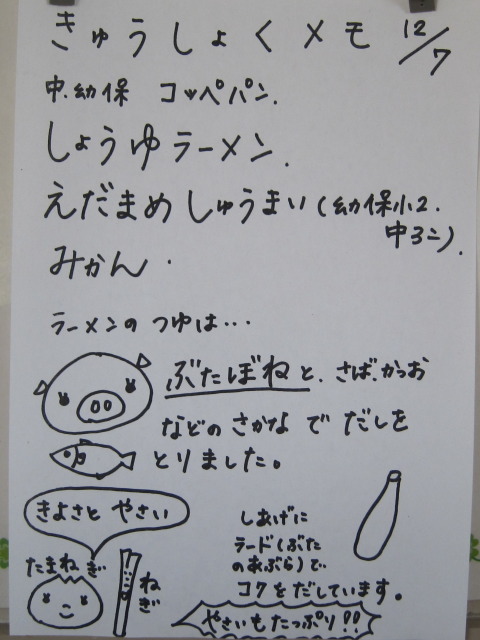 きゅうしょくメモ 12/7
中.幼保 コッペパン.
しょうゆラーメン.
えだまめしゅうまい(幼保小2.
中3コ).
みかん.
ラーメンの つゆは…
ぶたぼねと、さば、かつお
などの さかな で だしを
とりました。
きよさと やさい
たまねぎ
ねぎ
しあげに
ラード(ぶた
のあぶら)で
コクをだしています。
やさいもたっぷり!!